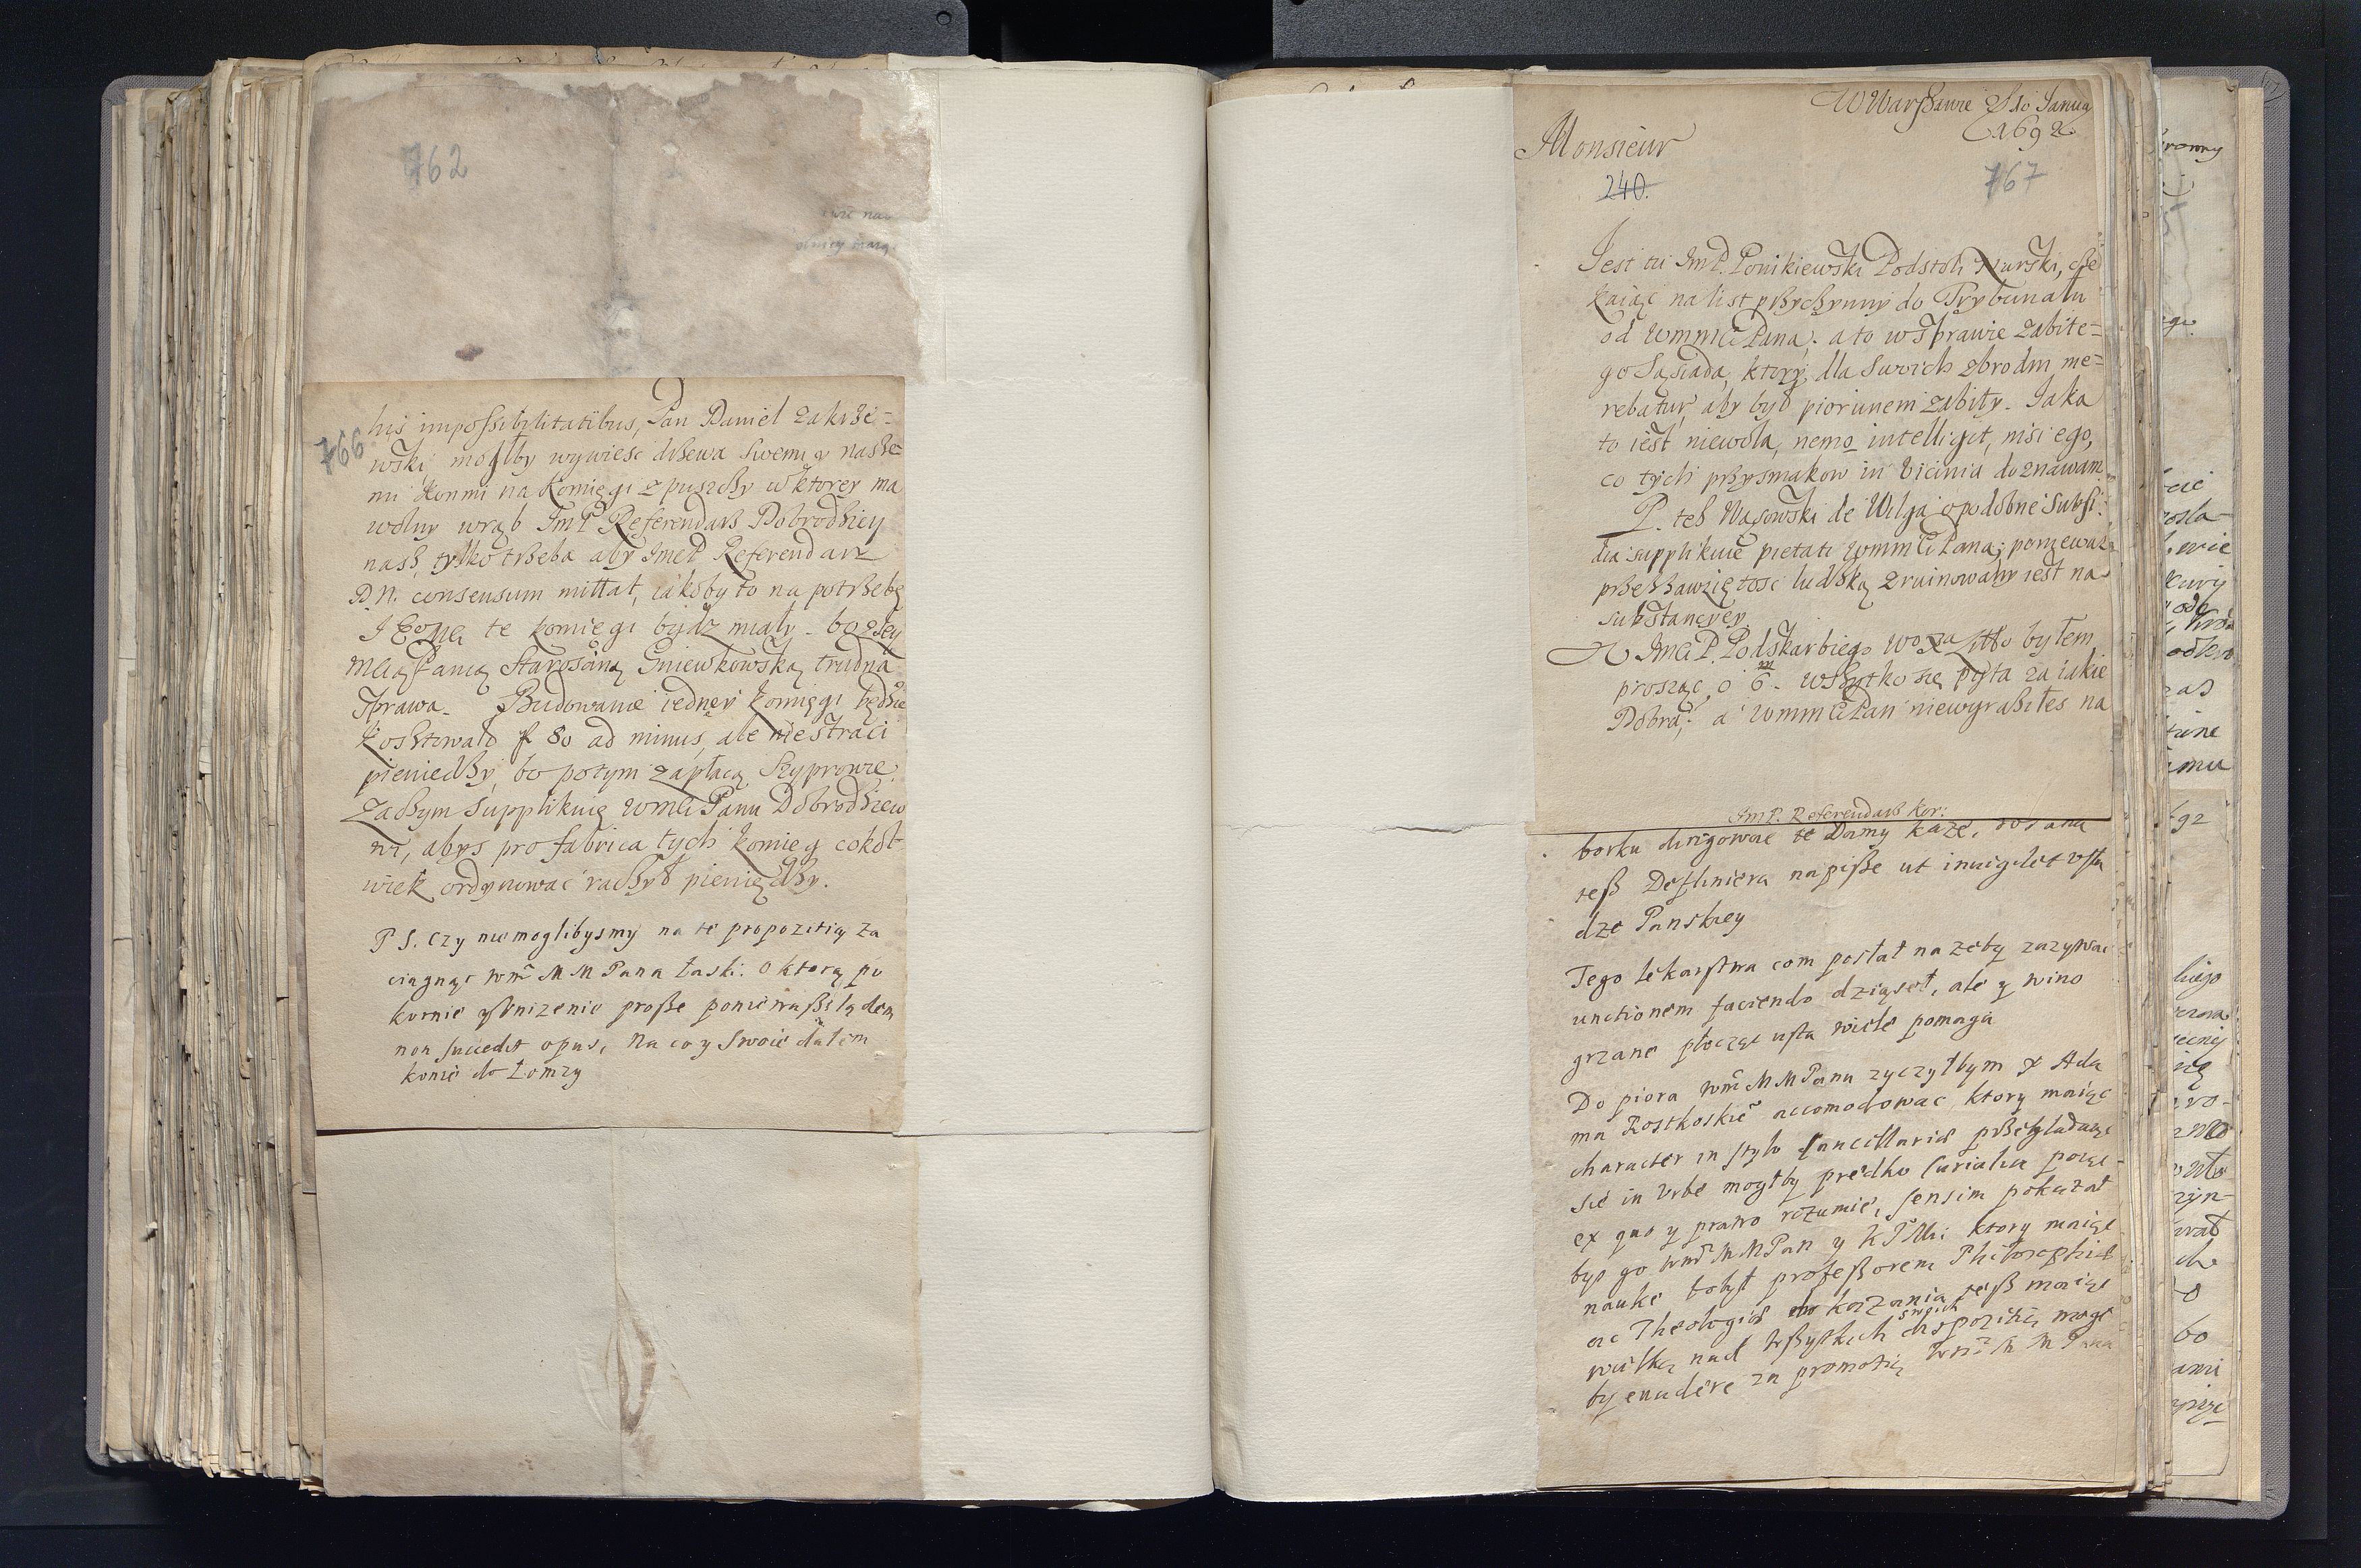 762
766
his impossibilitatibus, Pan Daniel Zakrze=
wski mogłby wywiesc drzewa swemi y nasze
mi konmi na Komięgi z puszczy w ktorey ma
wolny wrąb ImP Referendarz Dobrodziey
nasz, tylko trzeba aby Imci P Referendarz
D N. consensum mittat, jakoby to na potrzebę
te komięgi bydz miały. bo z Iey
Mcią Panią Starosciną Gniewkowską trudna
sprawa. Budowanie iedney komięgi będzie
kosztowało f 80 ad minus, ale nie straci
pieniędzy, bo potym zapłacą Szyprowie.
Zaczym supplikuię WMci Panu Dobrodziew
ni, abys pro fabrica tych komieg cokol
wiek ordynować raczył pieniędzy.
P S. Czy nie moglibysmy na te propozitią za
ciągnąć wm̃ M M Pana Łaski. o ktorą po
kornie y unizenie prosze poniewasz lądem
non succedit opus, na co y swoie dałem
konie do Łomzy
W Warszawie d 10 Janua
1692
Monsieur
240.
767
Iest tu ImP. Ponikiewski Podstoli Nurski, cze
kaiąc na list przyczynny do Trybunału
od WMMCi Pana; a to w sprawie zabite=
go Sąsiada, ktory dla swoich zbrodni me=
rebatur, aby był piorunem zabity. Iaka
to iest niewola, nemo intelligit, nisi ego,
co tych przysmakow in vicinia doznawam
P. tesz Wąsowski de Wilga o podobne Subsi:
dia supplikuie pietati WMMCi Pana; poniewaz
przez zawziętosc ludzką zruinowany iest na
substancyey
U Imci P. Podskarbiego byłem
prosząc o 6. wszytko się pyta za iakie
Dobra; a WMMCi Pan niewyraziłes na
ImP. Referendarz Kor:
borku dirigowac te Damy kaze,
tesz napisze ut invigilet
dze Panskey
Tego lekarstwa com posłał na zeby zazywac
unctionem faciendo dziąseł, ale y wino
grzane płocząc usta wiele pomaga
Do piora wm̃ M M Panu zyczyłbym X Ada
ma Rostkoskie accomodowac, ktory maiąc
character in stylo Cancellaria przeglądawszy
sie in Urbe mogłby prędko Curialia poiąć
ex quo y prawo rozumie, sensim pokazał
bys go wm̃ M M Pan y K J Mci ktory maiąc
nauke bo był professorem Philosophiae
ac Theologiae do kazania tesz maiąc
wielką nad wszystkich swoich dispozitią mogł
by evadere za promotią wm̃ M M Pana